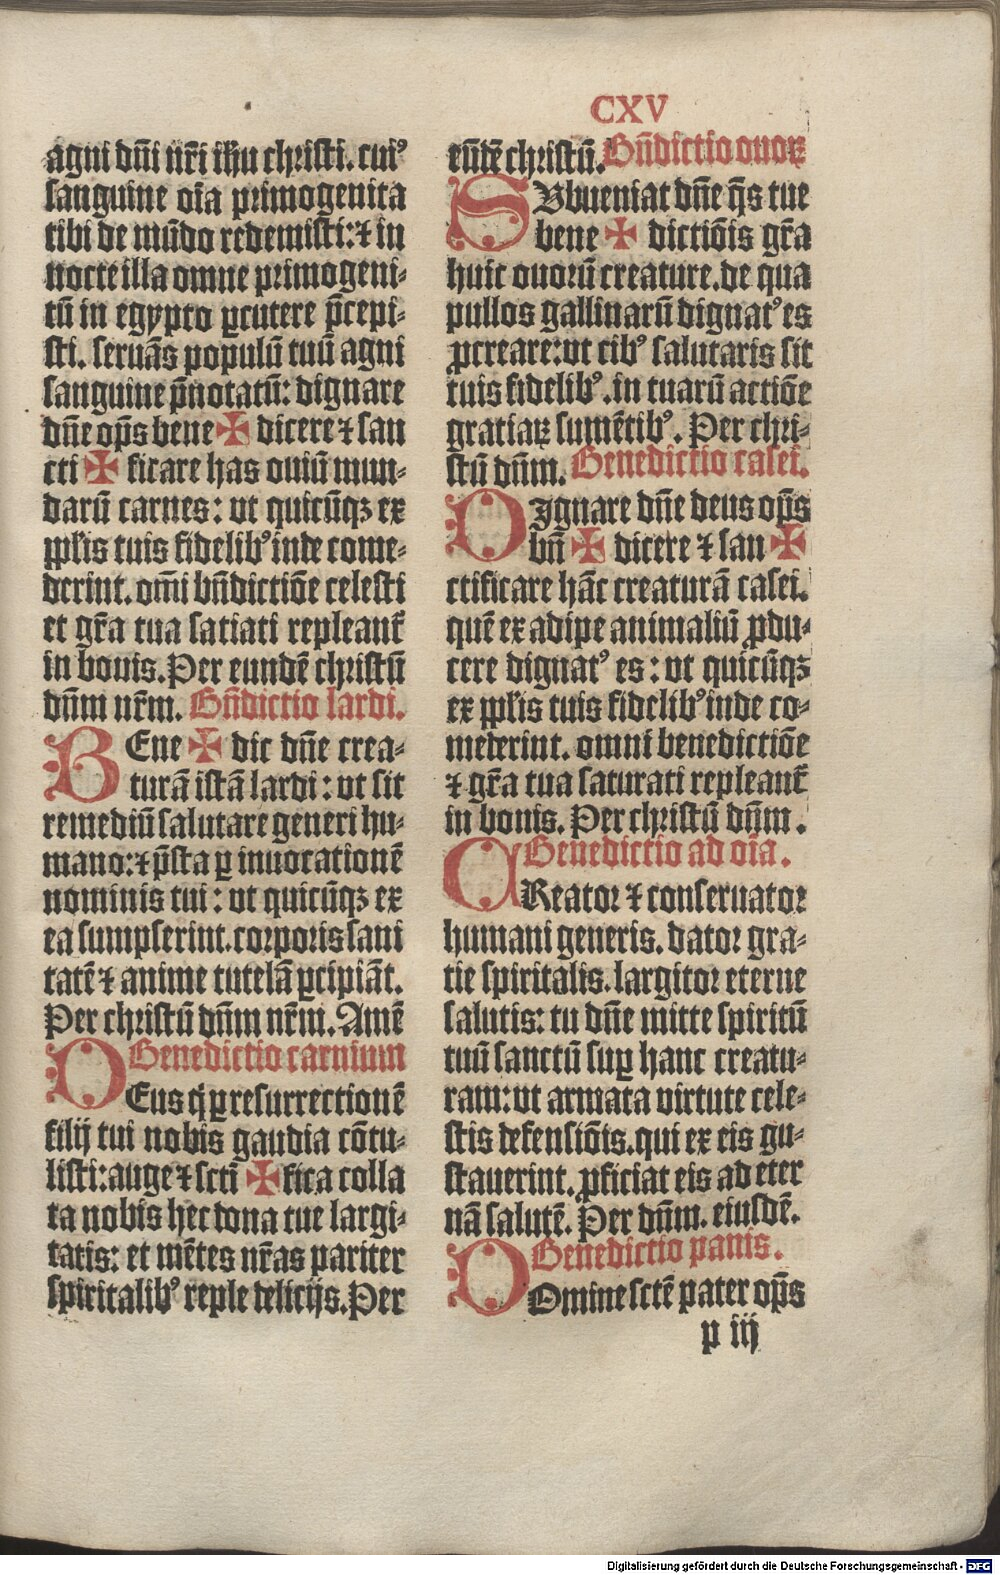 CXV
agni dn̄i nr̄i ih̄u christi. cuiꝰ
sanguine oīa primogenita
tibi de mūdo redemisti: ⁊ in
nocte illa omne primogeni-
tū in egypto ꝑcutere p̄cepi-
sti. seruās populū tuū agni
sanguine p̄notatū: dignare
dn̄e op̄s bene ✠ dicere ⁊ san
cti ✠ ficare has ouiū mun-
darū carnes: vt quicūqꝫ ex
ppl̄is tuis fidelibꝰ inde come-
derint. om̄i bn̄dictiōe celesti
et gr̄a tua satiati repleant᷑
in bonis. Per eundē christū
dn̄m nr̄m. Bn̄dictio lardi.
BEne ✠ dic dn̄e crea-
turā istā lardi: vt sit
remediū salutare generi hu-
mano: ⁊ p̄sta ꝑ inuocationē
nominis tui: vt quicūqꝫ ex
ea sumpserint. corporis sani
tatē ⁊ anime tutelā ꝑcipiāt.
Per christū dn̄m nr̄m. Amē
Benedictio carnium
DEus q̄ ꝑ resurrectionē
filij tui nobis gaudia cōtu-
listi: auge ⁊ scti ✠ fica colla
ta nobis hec dona tue largi-
tatis: et mētes nr̄as pariter
spiritalibꝰ reple delicijs. Per
eūdē christū. Bn̄dictio ouoꝝ
SVbueniat dn̄e q̄s tue
bene ✠ dictiōis gr̄a
huic ouorū creature. de qua
pullos gallinarū dignatꝰ es
ꝓcreare: vt cibꝰ salutaris sit
tuis fidelibꝰ. in tuarū actiōe
gratiaꝝ sumētibꝰ. Per chri-
stū dn̄m. Benedictio casei.
DIgnare dn̄e deus op̄s
bn̄ ✠ dicere ⁊ san ✠
ctificare hāc creaturā casei.
quē ex adipe animaliū ꝓdu-
cere dignatꝰ es: vt quicūqꝫ
ex ppl̄is tuis fidelibꝰ inde co-
mederint. omni benedictiōe
⁊ gr̄a tua saturati repleant᷑
in bonis. Per christū dn̄m.
Benedictio ad oīa.
CReator ⁊ conseruator
humani generis. dator gra-
tie spiritalis. largitor eterne
salutis: tu dn̄e mitte spiritū
tuū sanctū suꝑ hanc creatu-
ram: vt armata virtute cele-
stis defensiōis. qui ex eis gu-
stauerint. ꝓficiat eis ad eter
nā salutē. Per dn̄m. eiusdē.
Benedictio panis.
DOmine sctē pater op̄s
p iij
Digitalisierung gefördert durch die Deutsche Forschungsgemeinschaft - DFG